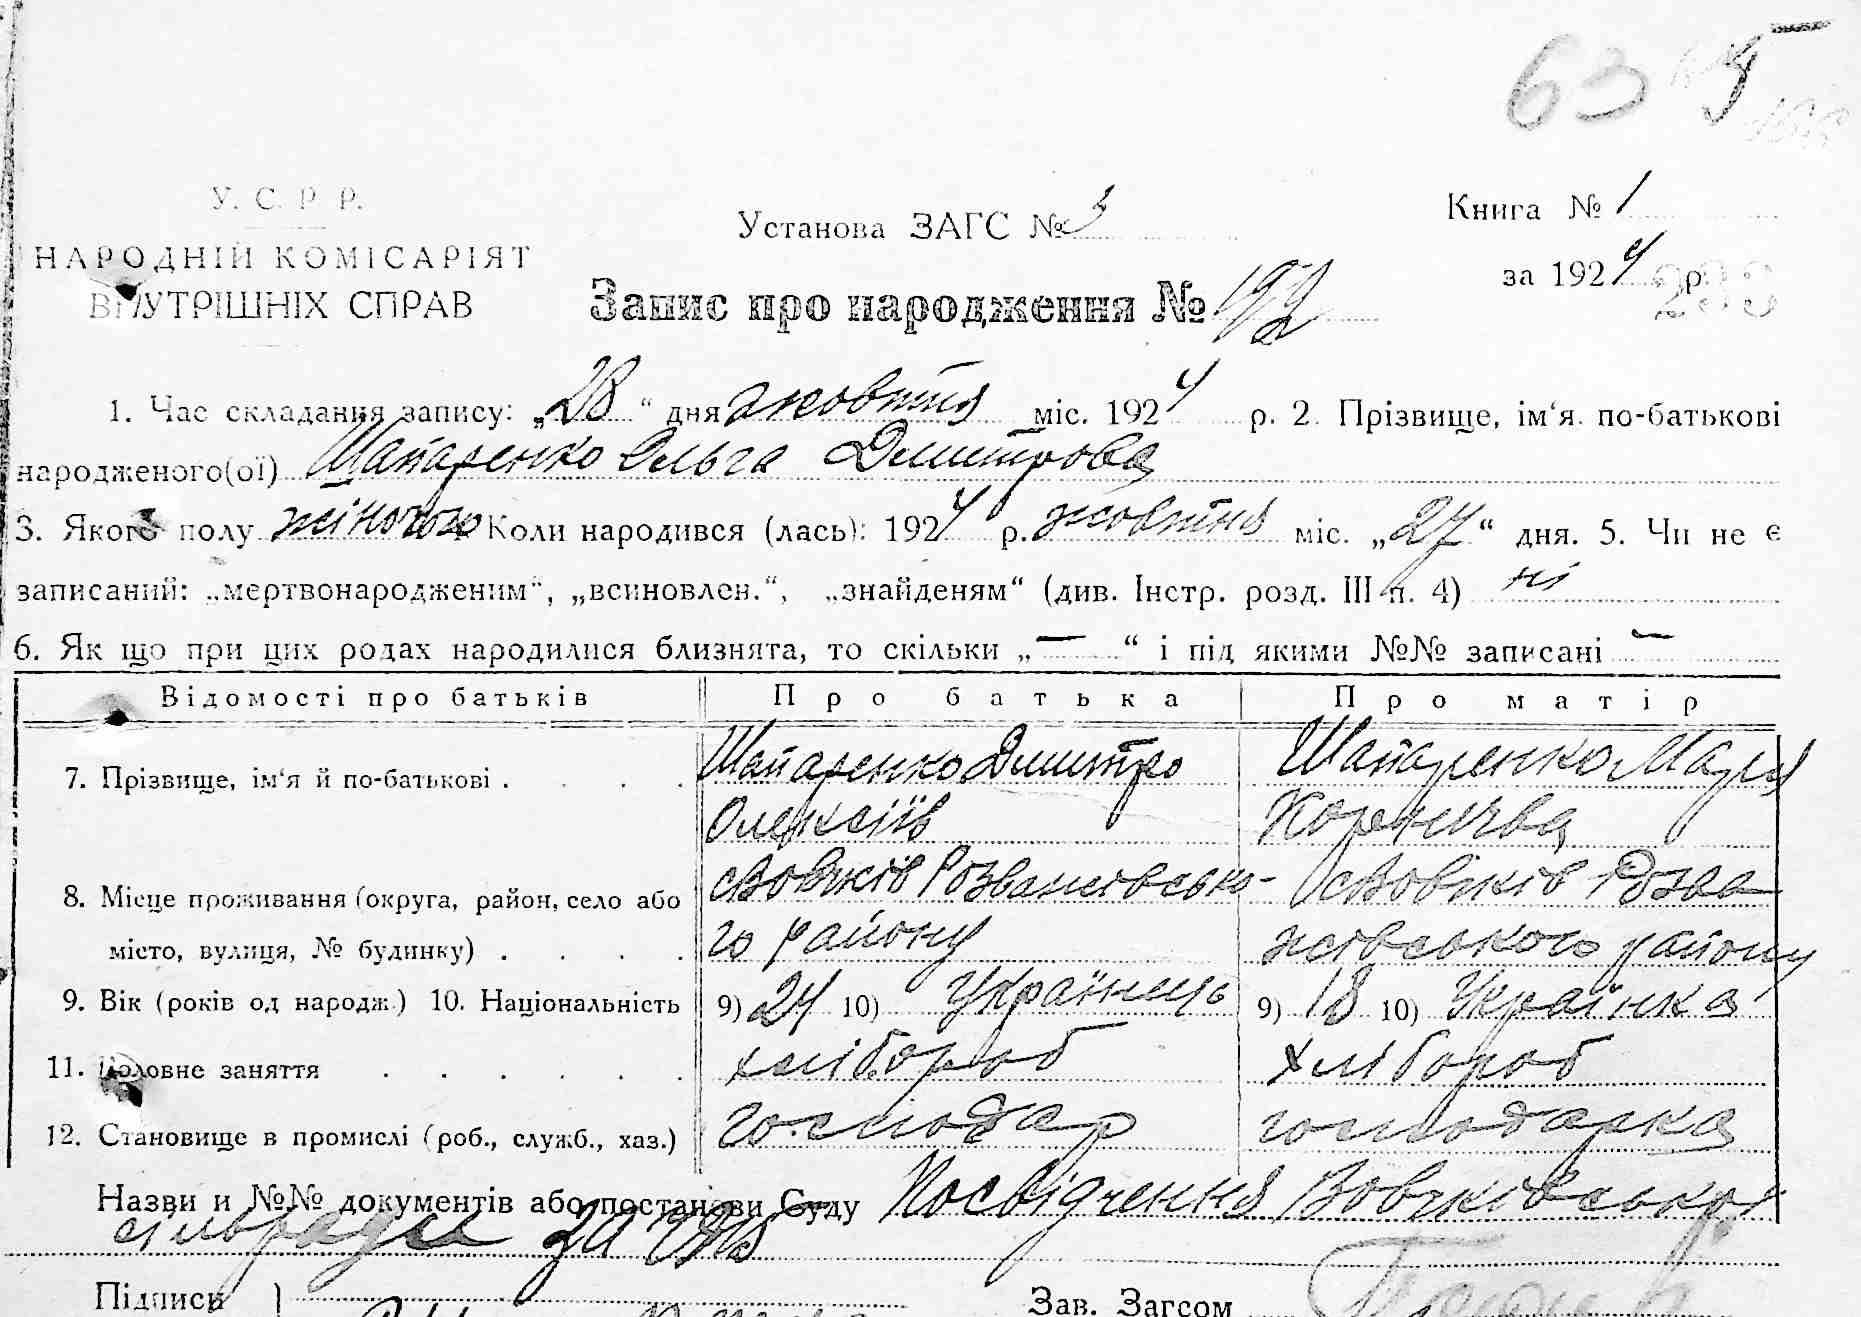 63
У. С. Р. Р.
НАРОДНІЙ КОМІСАРІЯТ
ВНУТРІШНІХ СПРАВ
Установа ЗАГС № 3
Книга № 1
за 1924 р.
Запис про народження № 192
1. Час складання запису: „28“ дня жовтня міс. 1924 р. 2. Прізвище, ім‘я. по-батькові
народженого(ої) Шапаренко Ольга Дмитрова
3. Якого полу жіночого Коли народився (лась): 1924 р. жовтня міс. „27“ дня. 5. Чи не є
записаний: „мертвонародженим“, „всиновлен.“, „знайденям“ (див. Інстр. розд. III п. 4) ні
6. Як що при цих родах народилися близнята, то скільки „—“ і під якими №№ записані —
Відомості про батьків Про батька Про матір
7. Прізвище, ім‘я й по-батькові . . . . Шапаренко Дмитро Шапаренко Марія
Олексіїв
8. Місце проживання (округа, район, село або с Вовчків Розважівсько- с Вовчків Розва
місто, вулиця, № будинку) . . . . го району жівського району
9. Вік (років од народж.) 10. Національність 9) 24 10) Українець 9) 18 10) Українка
11. Головне заняття . . . . . . хлібороб хлібороб
12. Становище в промислі (роб., служб., хаз.) господар господарка
Назви и №№ документів або постанови Суду Посвідчення Вовчківської
сільради за
Підпись
Зав. Загсом